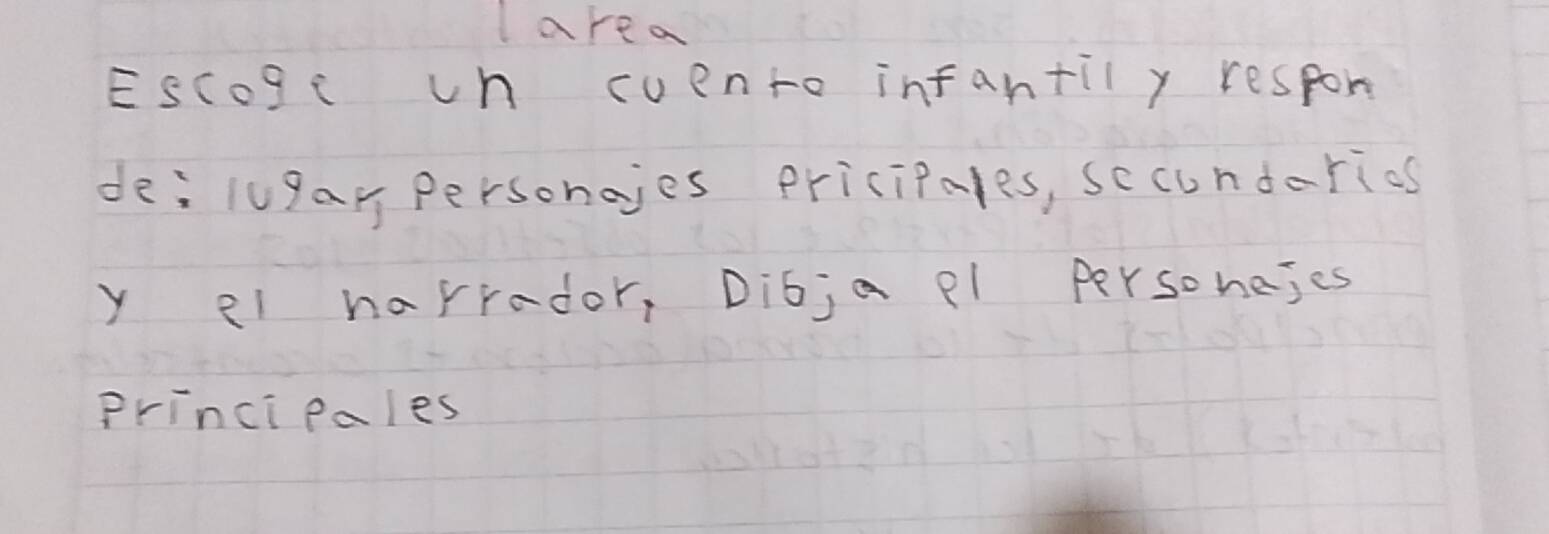 Tarea
Escoge un cuento infantil y respon
de: lugar, Personajes pricipales, secundarios
y el narrador, Dibja el Personajes
principales